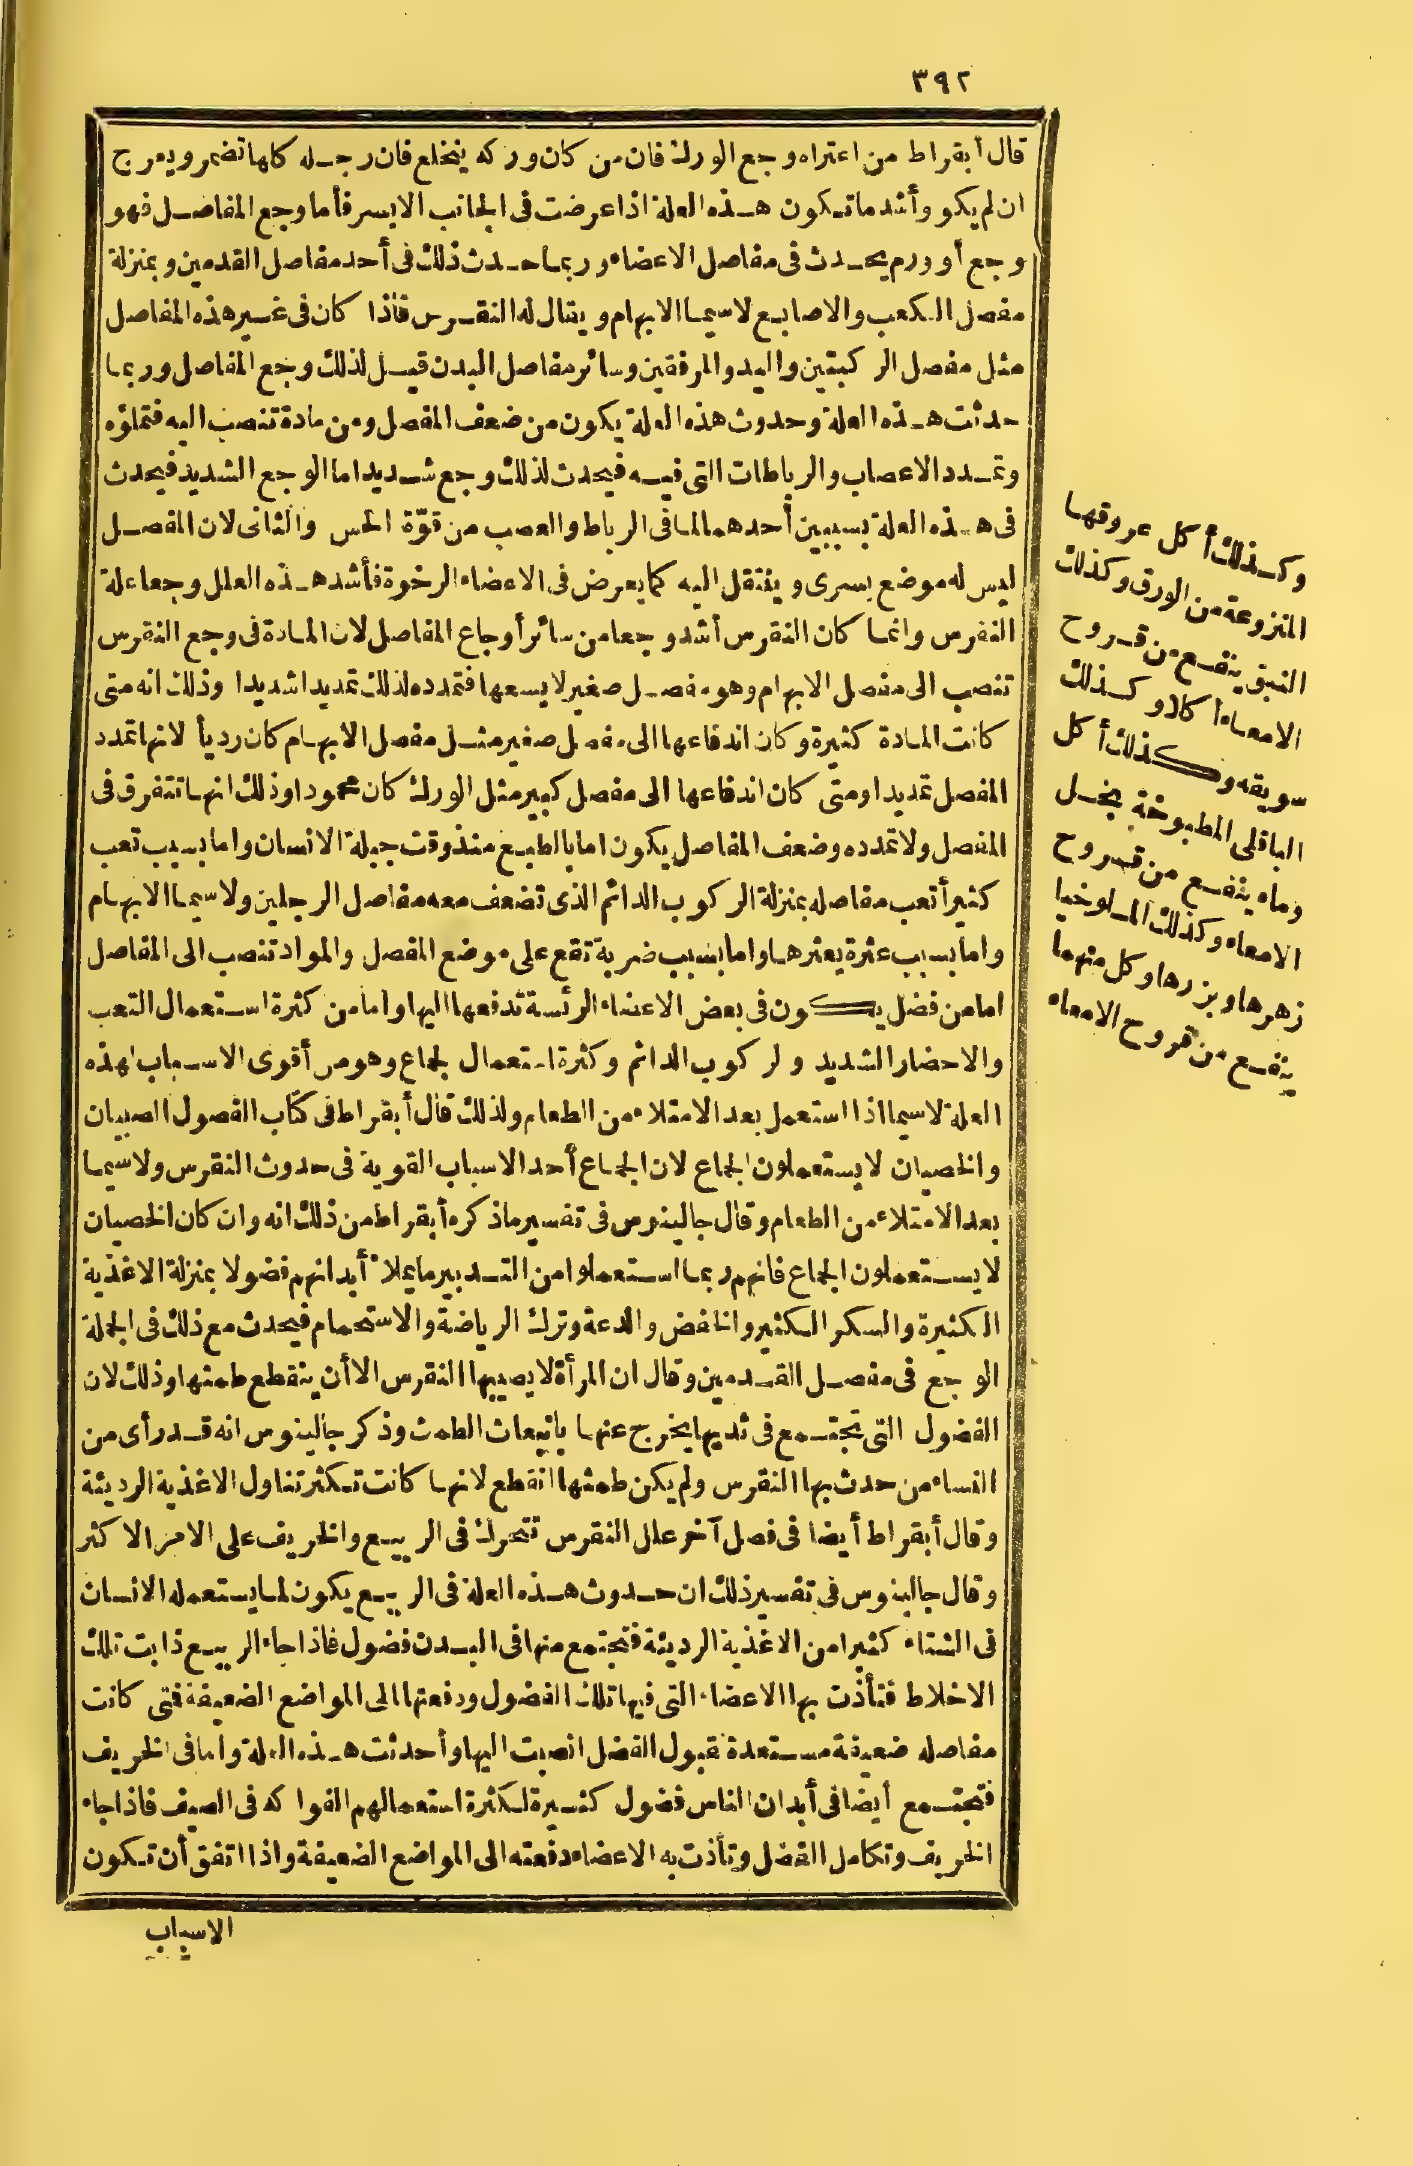 ٣٩٢
قال أبقراط من اعتراه وجع الورك فان من كان وركه ينخلع فان رجله كلها تضمر ويعرج
ان لم يكو وأشد ما تكون هذه العلة اذا عرضت فى الجانب الايسر فأما وجع المفاصل فهو
وجع أو ورم يحدث فى مفاصل الاعضاء وربما حدث ذلك فى أحد مفاصل القدمين وبمنزلة
مفصل الكعب والاصابع لاسيما الابهام ويقال له النقرس فاذا كان فى غير هذه المفاصل
مثل مفصل الركبتين واليد والمرفقين وسائر مفاصل البدن قيل لذلك وجع المفاصل وربما
حدثت هذه العلة وحدوث هذه العلة يكون من ضعف المفصل ومن مادة تنصب اليه فتملؤه
وتمدد الاعصاب والرباطات التى فيه فيحدث لذلك وجع شديد اما الوجع الشديد فيحدث
فى هذه العلة بسببين أحدهما لما فى الرباط والعصب من قوّة الحس والثانى لان المفصل
ليس له موضع يسرى وينتقل اليه كما يعرض فى الاعضاء الرخوة فأشد هذه العلل وجعا علة
النقرس وانما كان النقرس أشد وجعا من سائر أوجاع المفاصل لان المادة فى وجع النقرس
تنصب الى مفصل الابهام وهو مفصل صغير لا يسعها فتمدده لذلك تمديدا شديدا وذلك انه متى
كانت المادة كثيرة وكان اندفاعها الى مفصل صغير مثل مفصل الابهام كان رديأ لانها تمدد
المفصل تمديدا ومتى كان اندفاعها الى مفصل كبير مثل الورك كان محمودا وذلك انها تتفرق فى
المفصل ولا تمدده وضعف المفاصل يكون اما بالطبع منذ وقت جبلة الانسان واما بسبب تعب
كثير أتعب مفاصله بمنزلة الركوب الدائم الذى تضعف معه مفاصل الرجلين ولاسيما الابهام
واما بسبب عثرة يعثرها واما بسبب ضربة تقع على موضع المفصل والمواد تنصب الى المفاصل
اما من فضل يكون فى بعض الاعضاء الرئسة تدفعها اليها واما من كثرة استعمال التعب
والاحضار الشديد والركوب الدائم وكثرة استعمال الجماع وهو من أقوى الاسباب لهذه
العلة لاسيما اذا استعمل بعد الامتلاء من الطعام ولذلك قال أبقراط فى كتاب الفصول الصبيان
والخصيان لا يستعملون الجماع لان الجماع أحد الاسباب القوية فى حدوث النقرس ولاسيما
بعد الامتلاء من الطعام وقال جالينوس فى تفسير ماذكره أبقراط من ذلك انه وان كان الخصيان
لا يستعملون الجماع فانهم ربما استعملوا من التدبير ما يملأ أبدانهم فضولا بمنزلة الاغذية
الكثيرة والسكر الكثير والخفض والدعة وترك الرياضة والاستحمام فيحدث مع ذلك فى الجملة
الوجع فى مفصل القدمين وقال ان المرأة لا يصيبها النقرس الا أن ينقطع طمثها وذلك لان
الفضول التى تجتمع فى ثديها يخرج عنها بانبعاث الطمث وذكر جالينوس انه قد رأى من
النساء من حدث بها النقرس ولم يكن طمثها انقطع لانها كانت تكثر تناول الاغذية الرديئة
وقال أبقراط أيضا فى فصل آخر علل النقرس تتحرك فى الربيع والخريف على الامر الاكثر
وقال جالينوس فى تفسير ذلك ان حدوث هذه العلة فى الربيع يكون لما يستعمله الانسان
فى الشتاء كثيرا من الاغذية الرديئة فتجتمع منها فى البدن فضول فاذا جاء الربيع ذابت تلك
الاخلاط فتأذت بها الاعضاء التى فيها تلك الفضول ودفعتها الى المواضع الضعيفة فتى كانت
مفاصله ضعيفة مستعدة لقبول الفضل انصبت اليها وأحدثت هذه العلة وأما فى الخريف
فتجتمع أيضا فى أبدان الناس فضول كثيرة لكثرة استعمالهم الفواكه فى الصيف فاذا جاء
الخريف وتكامل الفضل وتأذت به الاعضاء دفعته الى المواضع الضعيفة واذا اتفق أن تكون
الاسباب
وكذلك أكل عروقها
المنزوعة من الورق وكذلك
النبق ينفع من قروح
الامعاء أكلا وكذلك
سويقه وكذلك أكل
الباقلى المطبوخة بخل
وماء ينفع من قروح
الامعاء وكذلك الملوخيا
زهرها وبزرها وكل منهما
ينفع من قروح الامعاء